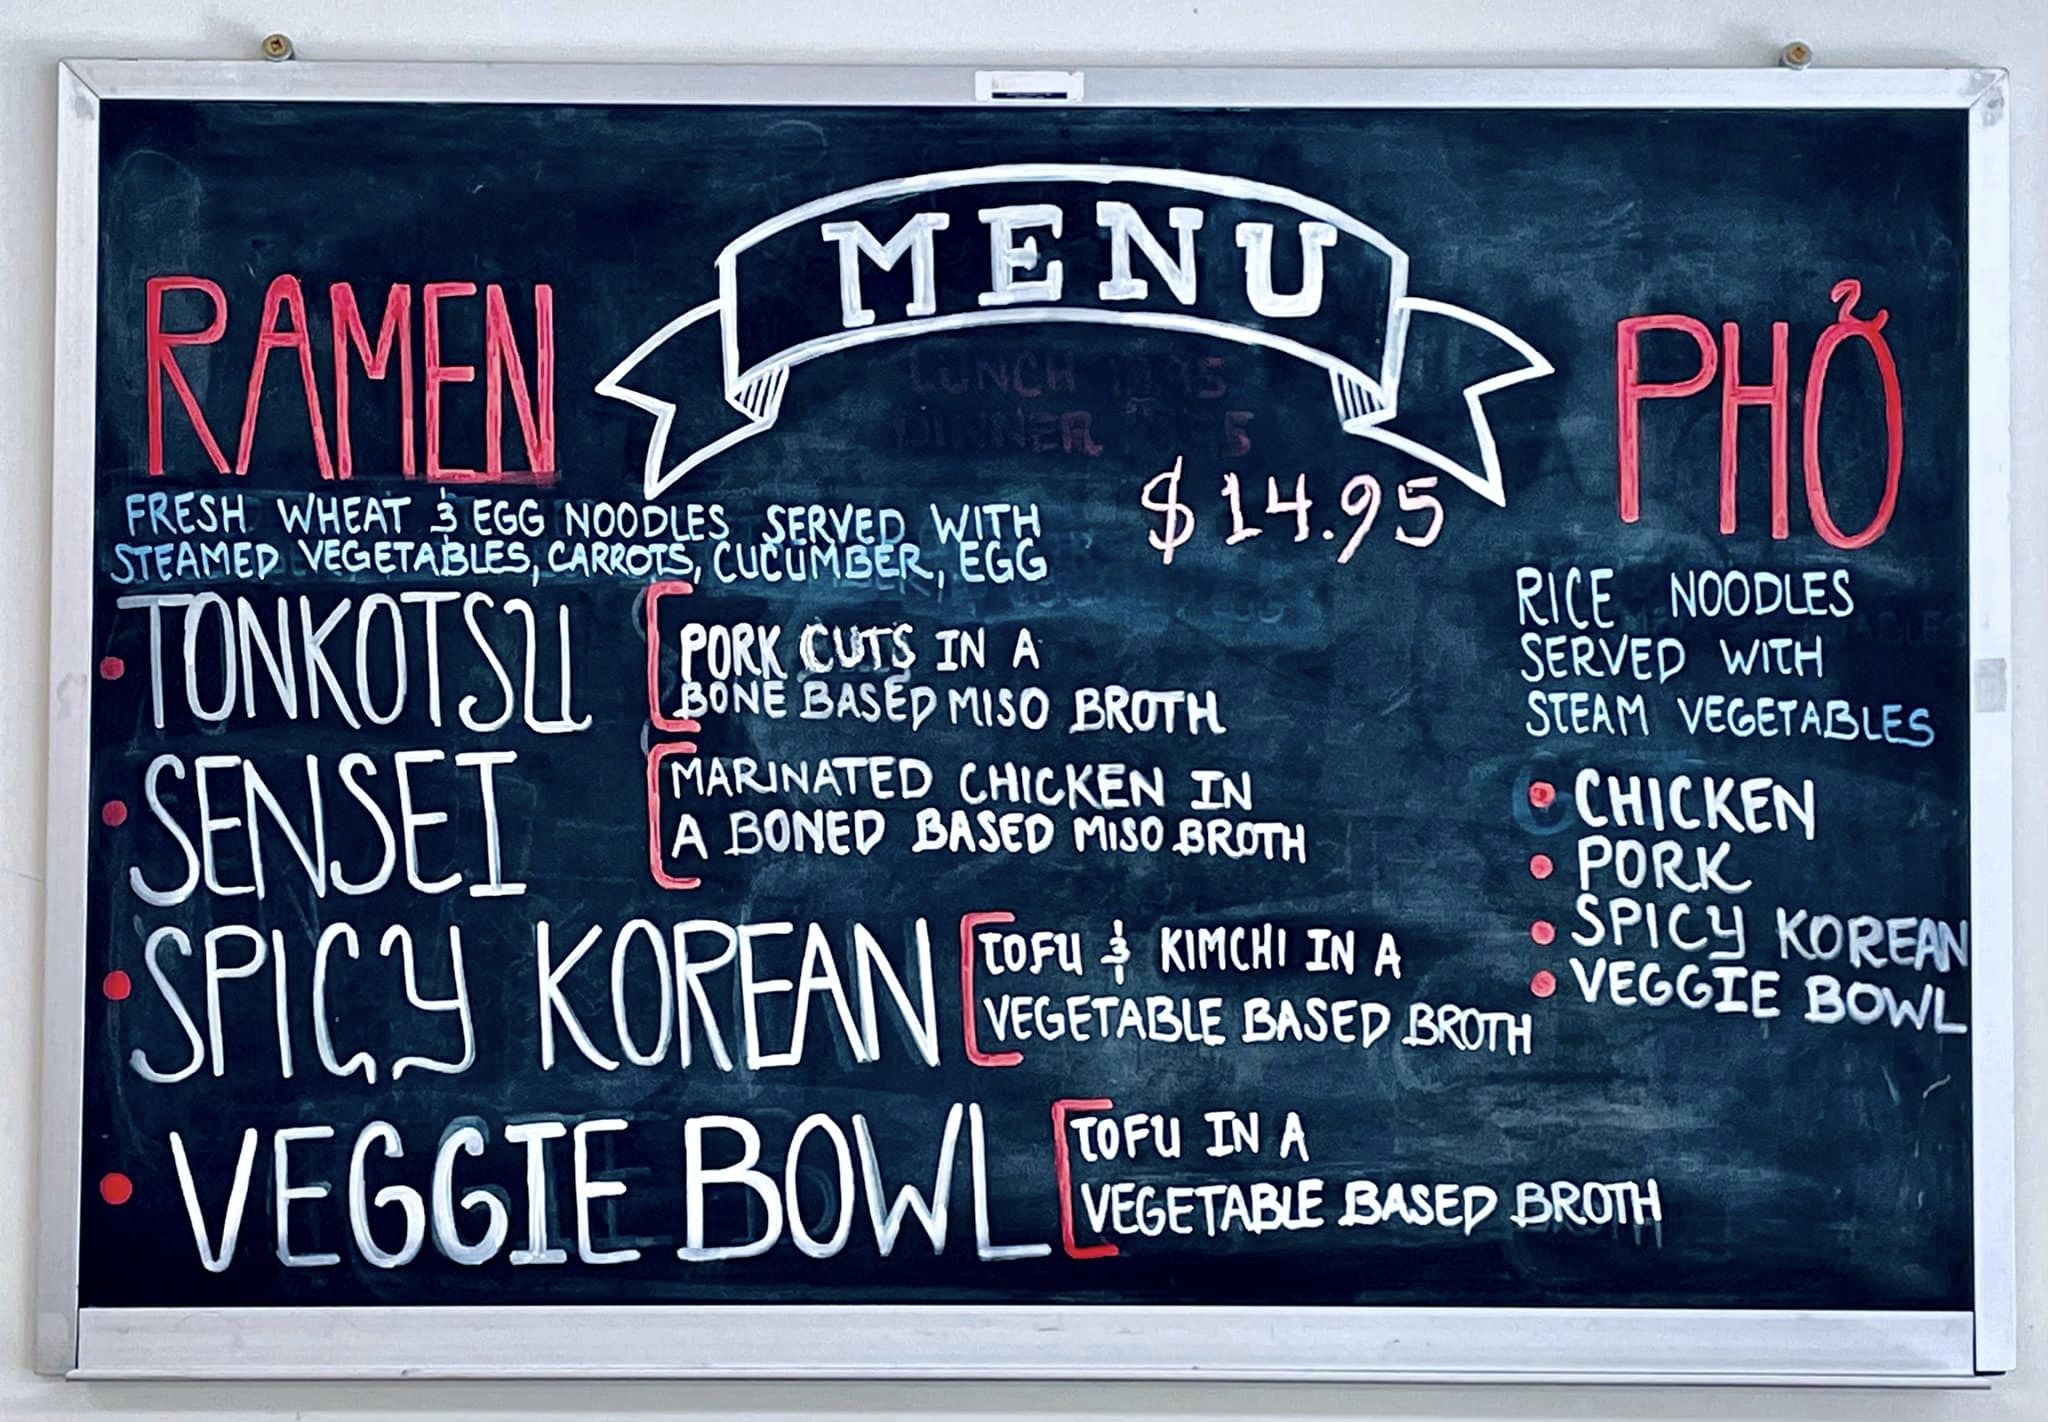 MENU
LUNCH
DINNER
$14.95
RAMEN
FRESH WHEAT & EGG NOODLES SERVED WITH
STEAMED VEGETABLES, CARROTS, CUCUMBER, EGG
TONKOTSU
PORK CUTS IN A
BONE BASED MISO BROTH
SENSEI
MARINATED CHICKEN IN
A BONED BASED MISO BROTH
SPICY KOREAN
TOFU & KIMCHI IN A
VEGETABLE BASED BROTH
VEGGIE BOWL
TOFU IN A
VEGETABLE BASED BROTH
PHỞ
RICE NOODLES
SERVED WITH
STEAM VEGETABLES
CHICKEN
PORK
SPICY KOREAN
VEGGIE BOWL